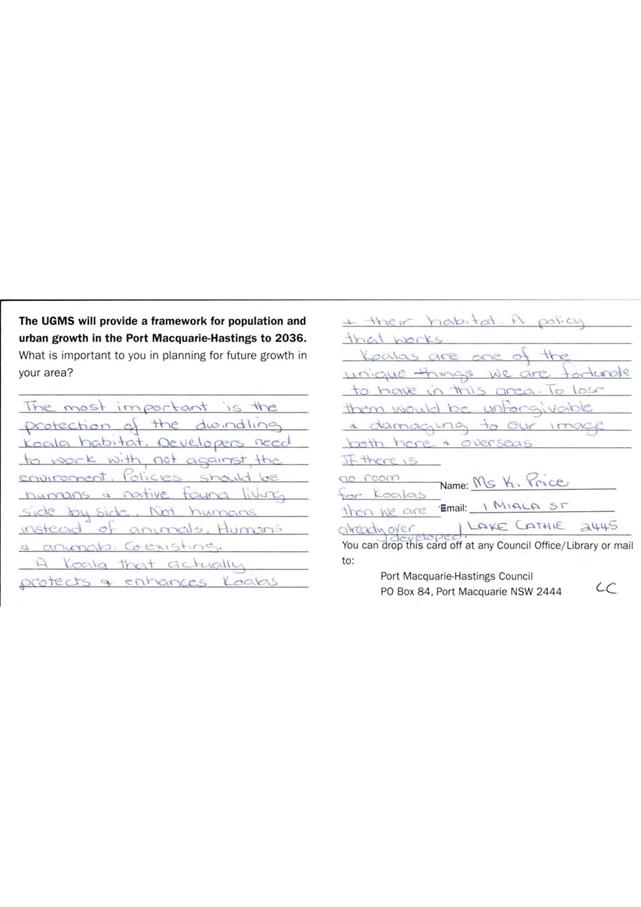 The UGMS will provide a framework for population and
urban growth in the Port Macquarie-Hastings to 2036.
What is important to you in planning for future growth in
your area?
The most important is the
protection of the dwindling
Koala habitat. Developers need
to work with, not against the
enviroment. Policies should be
humans & native fauna living
side by side. Not humans
instead of animals. Humans
& animals. Co existing.
A Koala that actually
protects & enhances Koalas
& their habitat. A policy
that works.
Koalas are one of the
unique things we are fortunate
to have in this area. To lose
them would be unforgivable
& damaging to our image
both here & overseas
If there is
no room
for Koalas
then we are
already over
developed.
Name: Ms K. Price
Email: 1 MIALA ST
LAKE CATHIE 2445
You can drop this card off at any Council Office/Library or mail
to:
Port Macquarie-Hastings Council
PO Box 84, Port Macquarie NSW 2444
CC